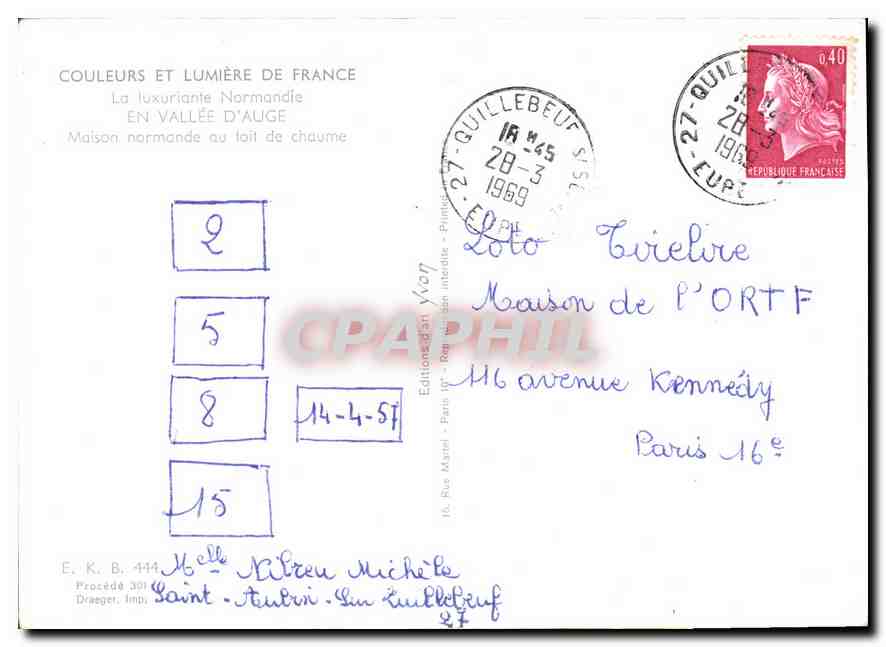 COULEURS ET LUMIÈRE DE FRANCE
La luxuriante Normandie
EN VALLÉE D'AUGE
Maison normande au toit de chaume
27-QUILLEBEUF S/SE
16 H 45
28-3
1969
EURE
27-QUILL
16 H 45
28-3
1969
EURE
0,40
POSTES
RÉPUBLIQUE FRANÇAISE
2
5
8
14-4-57
15
Loto Tirelire
Maison de l'ORTF
116 avenue Kennedy
Paris 16e
Editions d'art Yvon
16, Rue Martel - Paris 10e - Reproduction interdite - Printed in
CPAPHIL
E. K. B. 444
Procédé 301
Draeger, Imp.
Melle Michèle
Saint-Aubin-Sur Quillebeuf
27